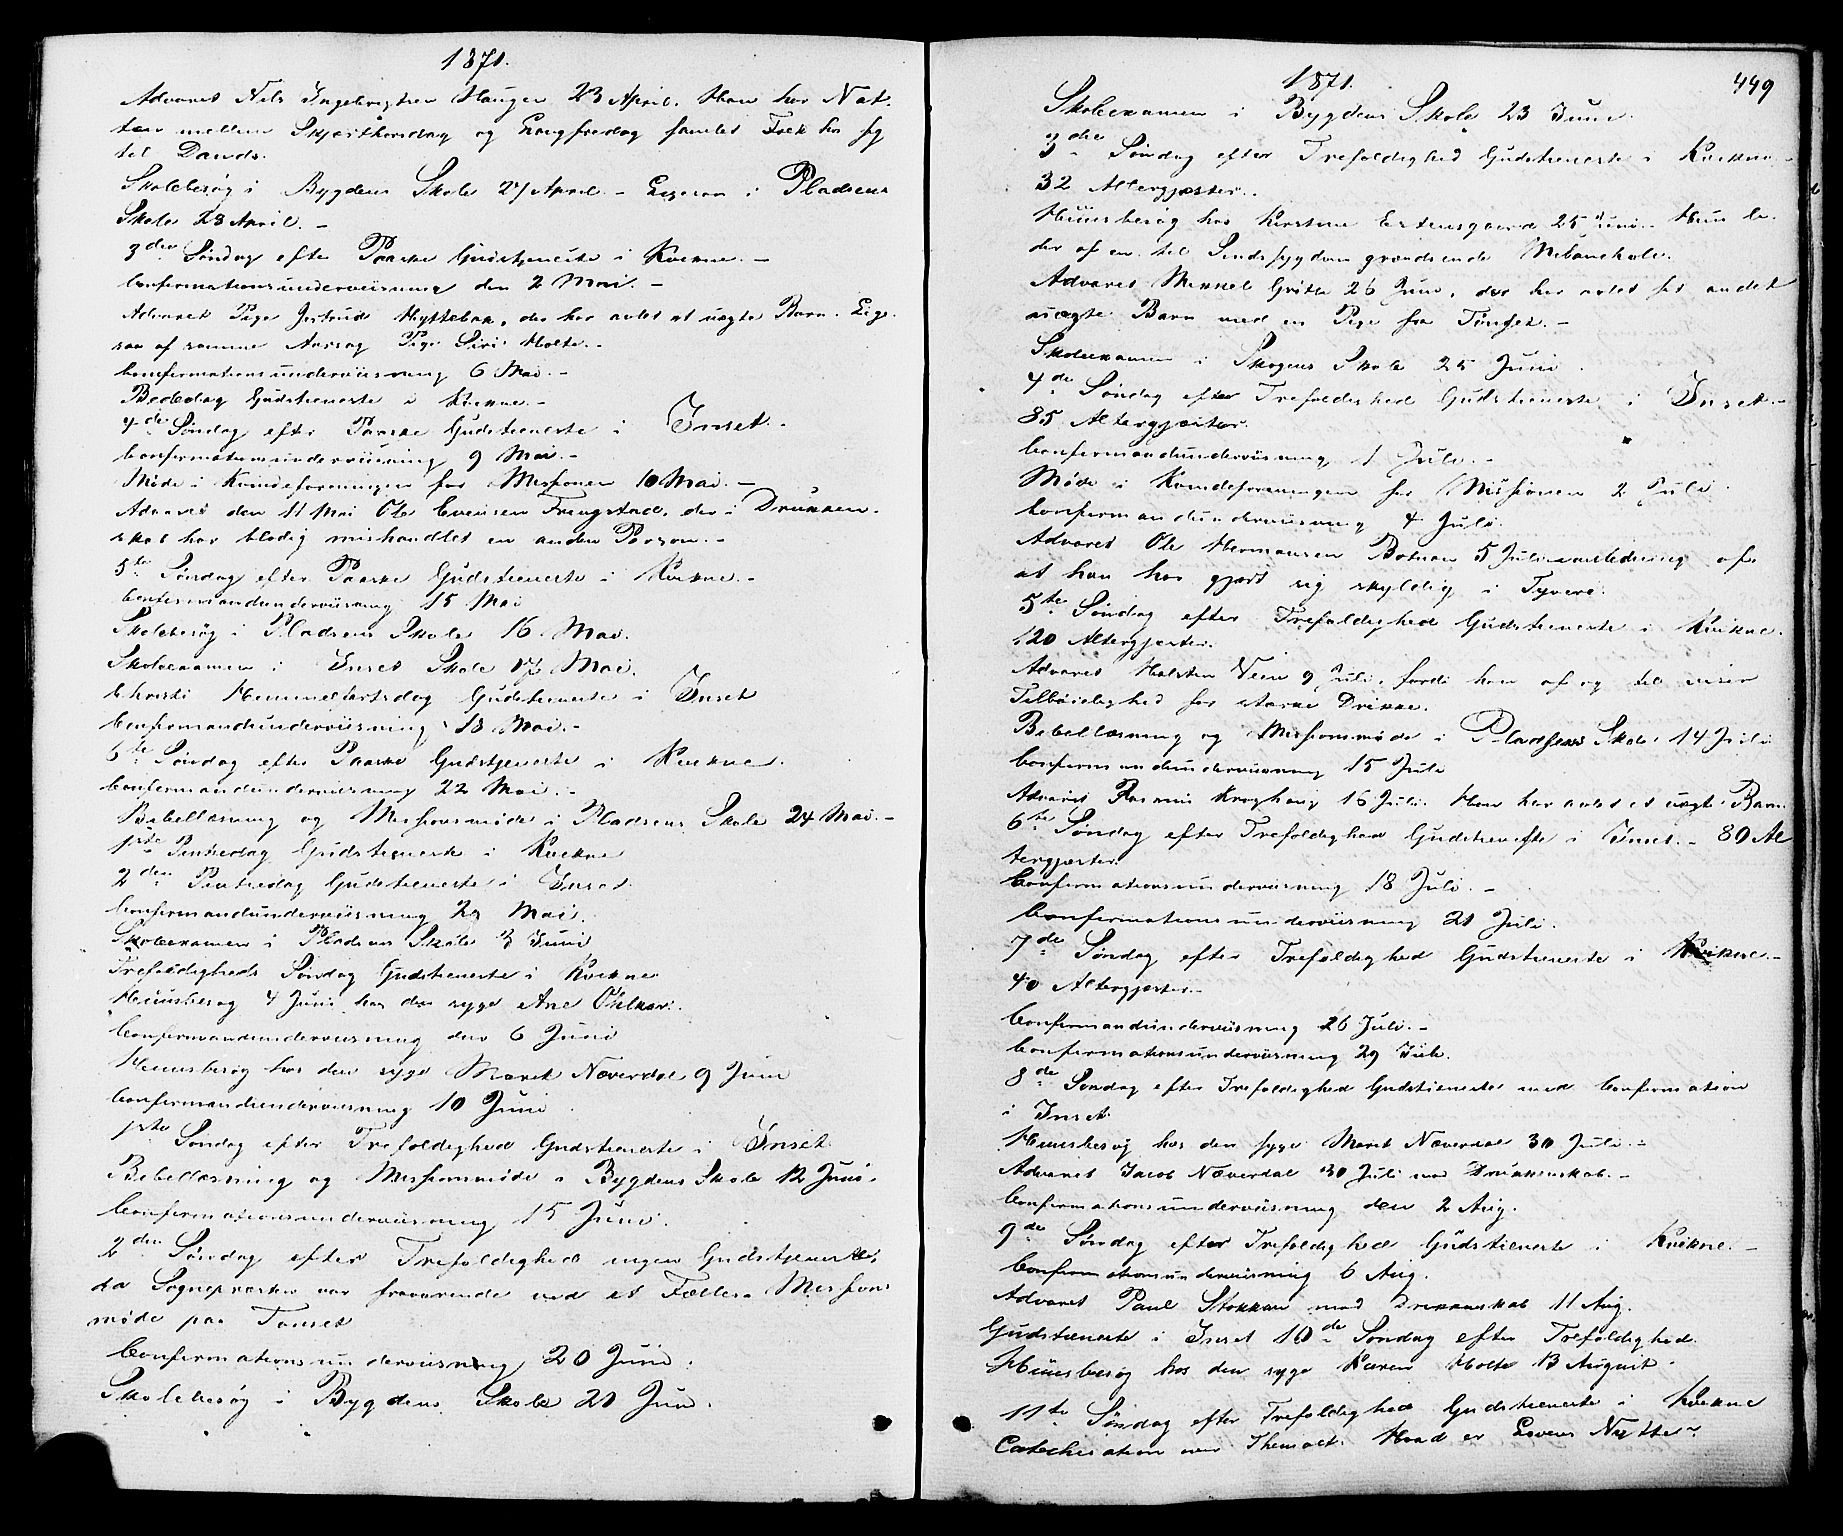 1871.
Advaret Nils Ingebrigtsen Haugen 23 April. Han har Nat-
ten mellem Skjærthorsdag og Langfredag samlet Folk hos sig
til Dands.
Skolebesøg i Bygdens Skole 27 April. - Ligesaa i Pladsens
Skole 28 April. -
3die Søndag efter Paaske Gudstjeneste i Kvikne. -
Confirmationsunderviisning den 2 Mai. -
Advaret Pige Gjertrud Hyttebak, der har avlet et uægte Barn. Lige-
saa af samme Aarsag Pige Siri Holte. -
Confirmationsunderviisning 6 Mai. -
Bededag Gudstieneste i Kvikne. -
4de Søndag efter Paaske Gudstieneste i Inset. -
Confirmationsunderviisning 9 Mai. -
Møde i Kvindeforeningen for Missionen 10 Mai. -
Advaret den 11 Mai Ole Evensen Frengstad, der i Drukken-
skab har blodig mishandlet en anden Person. -
5te Søndag efter Paaske Gudstieneste i Kvikne. -
Confirmandunderviisning 15 Mai
Skolebesøg i Pladsens Skole 16 Mai.
Skoleexamen i Inset Skole 17 Mai.
Christi Himmelfartsdag Gudstieneste i Inset
Confirmandunderviisning 18 Mai. -
6te Søndag efter Paaske Gudstjeneste i Kvikne.
Confirmandunderviisning 22 Mai. -
Bibellæsning og Missionsmøde i Pladsens Skole 24 Mai. -
1ste Pintsedag Gudstieneste i Kvikne
2den Pintsedag Gudstieneste i Inset.
Confirmandunderviisning 29 Mai.
Skoleexamen i Pladsens Skole 3 Juni
Trefoldigheds Søndag Gudstieneste i Kvikne
Huusbesøg 4 Juni hos den syge Ane
Confirmandunderviisning den 6 Juni
Huusbesøg hos den syge Marit Næverdal 9 Juni
Confirmandunderviisning 10 Juni.
1ste Søndag efter Trefoldighed Gudstieneste i Inset
Bibellæsning og Missionsmøde i Bygdens Skole 12 Juni.
Confirmationsunderviisning 15 Juni.
2den Søndag efter Trefoldighed ingen Gudstjeneste,
da Sognepræsten var fraværende ved et Fælles Missions-
møde paa Tønset
Confirmationsunderviisning 20 Juni.
Skolebesøg i Bygdens Skole 21 Juni.
1871.
449
Skoleexamen i Bygdens Skole 23 Juni.
3die Søndag efter Trefoldighed Gudstieneste i Kvikne. -
32 Altergjæster. -
Huusbesøg hos Kirstine Estensgaard 25 Juni. Hun li-
der af en til Sindssygdom grændsende Melancholi.
Advaret Mikkel Gritte 26 Juni, der har avlet sit andet
uægte Barn med en Pige fra Tønset. -
Skoleexamen i Skogens Skole 25 Juni.
4de Søndag efter Trefoldighed Gudstieneste i Inset. -
85 Altergjæster.
Confirmandunderviisning 1 Juli. -
Møde i Kvindeforeningen for Missionen 2 Juli.
Confirmandunderviisning 4 Juli.
Advaret Ole Hermansen 5 Juli i anledning af
at han har gjort sig skyldig i Tyveri.
5te Søndag efter Trefoldighed Gudstieneste i Kvikne.
120 Altergjæster.
Advaret Halsten Veen 9 Juli, fordi han af og til viser
Tilbøielighed for stærke Drikke.
Bibellæsning og Missionsmøde i Pladsens Skole 14 Juli
Confirmandunderviisning 15 Juli
Advaret Rasmus Kroghaug 16 Juli. Han har avlet et uægte Barn.
6te Søndag efter Trefoldighed Gudstieneste i Inset. - 80 Al-
tergjæster.
Confirmationsunderviisning 18 Juli. -
Confirmationsunderviisning 21 Juli.
7de Søndag efter Trefoldighed Gudstieneste i Kvikne. -
40 Altergjæster.
Confirmandunderviisning 26 Juli. -
Confirmationsunderviisning 29 Juli.
8de Søndag efter Trefoldighed Gudstieneste med Confirmation
i Inset.
Huusbesøg hos den syge Marit Næverdal 30 Juli. -
Advaret Jacob Næverdal 30 Juli mod Drukkenskab. -
Confirmationsunderviisning den 2 Aug.
9de Søndag efter Trefoldighed Gudstieneste i Kvikne. -
Confirmationsunderviisning 6 Aug.
Advaret Paul Stokkan mod Drukkenskab 11 Aug.
Gudstieneste i Inset 10de Søndag efter Trefoldighed.
Huusbesøg hos den syge Karen Holte 13 August.
11te Søndag efter Trefoldighed Gudstieneste i Kvikne
Catechisation over Themaet: Hvad er Lovens Nytte?